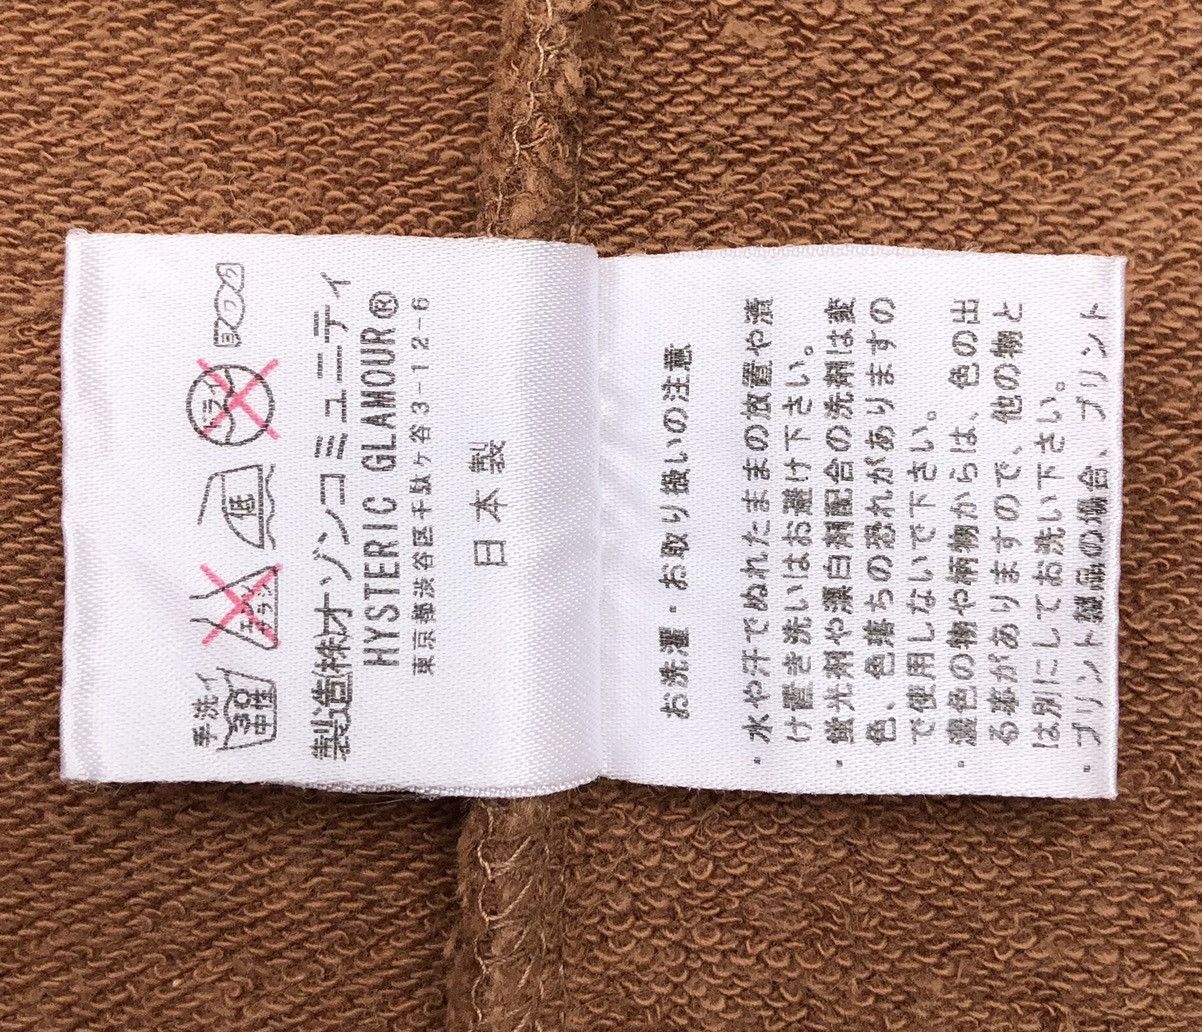 手洗イ
30
中性
エンソ
サラシ
低
ドライ
製造㈱オゾンコミュニティ
HYSTERIC GLAMOUR®
東京都渋谷区千駄ケ谷3-12-6
日本製
お洗濯・お取り扱いの注意
・水や汗でぬれたままの放置や漬
け置き洗いはお避け下さい。
・蛍光剤や漂白剤配合の洗剤は変
色、色落ちの恐れがありますの
で使用しないで下さい。
・濃色の物や柄物からは、色の出
る事がありますので、他の物と
は別にしてお洗い下さい。
・プリント製品の場合、プリント